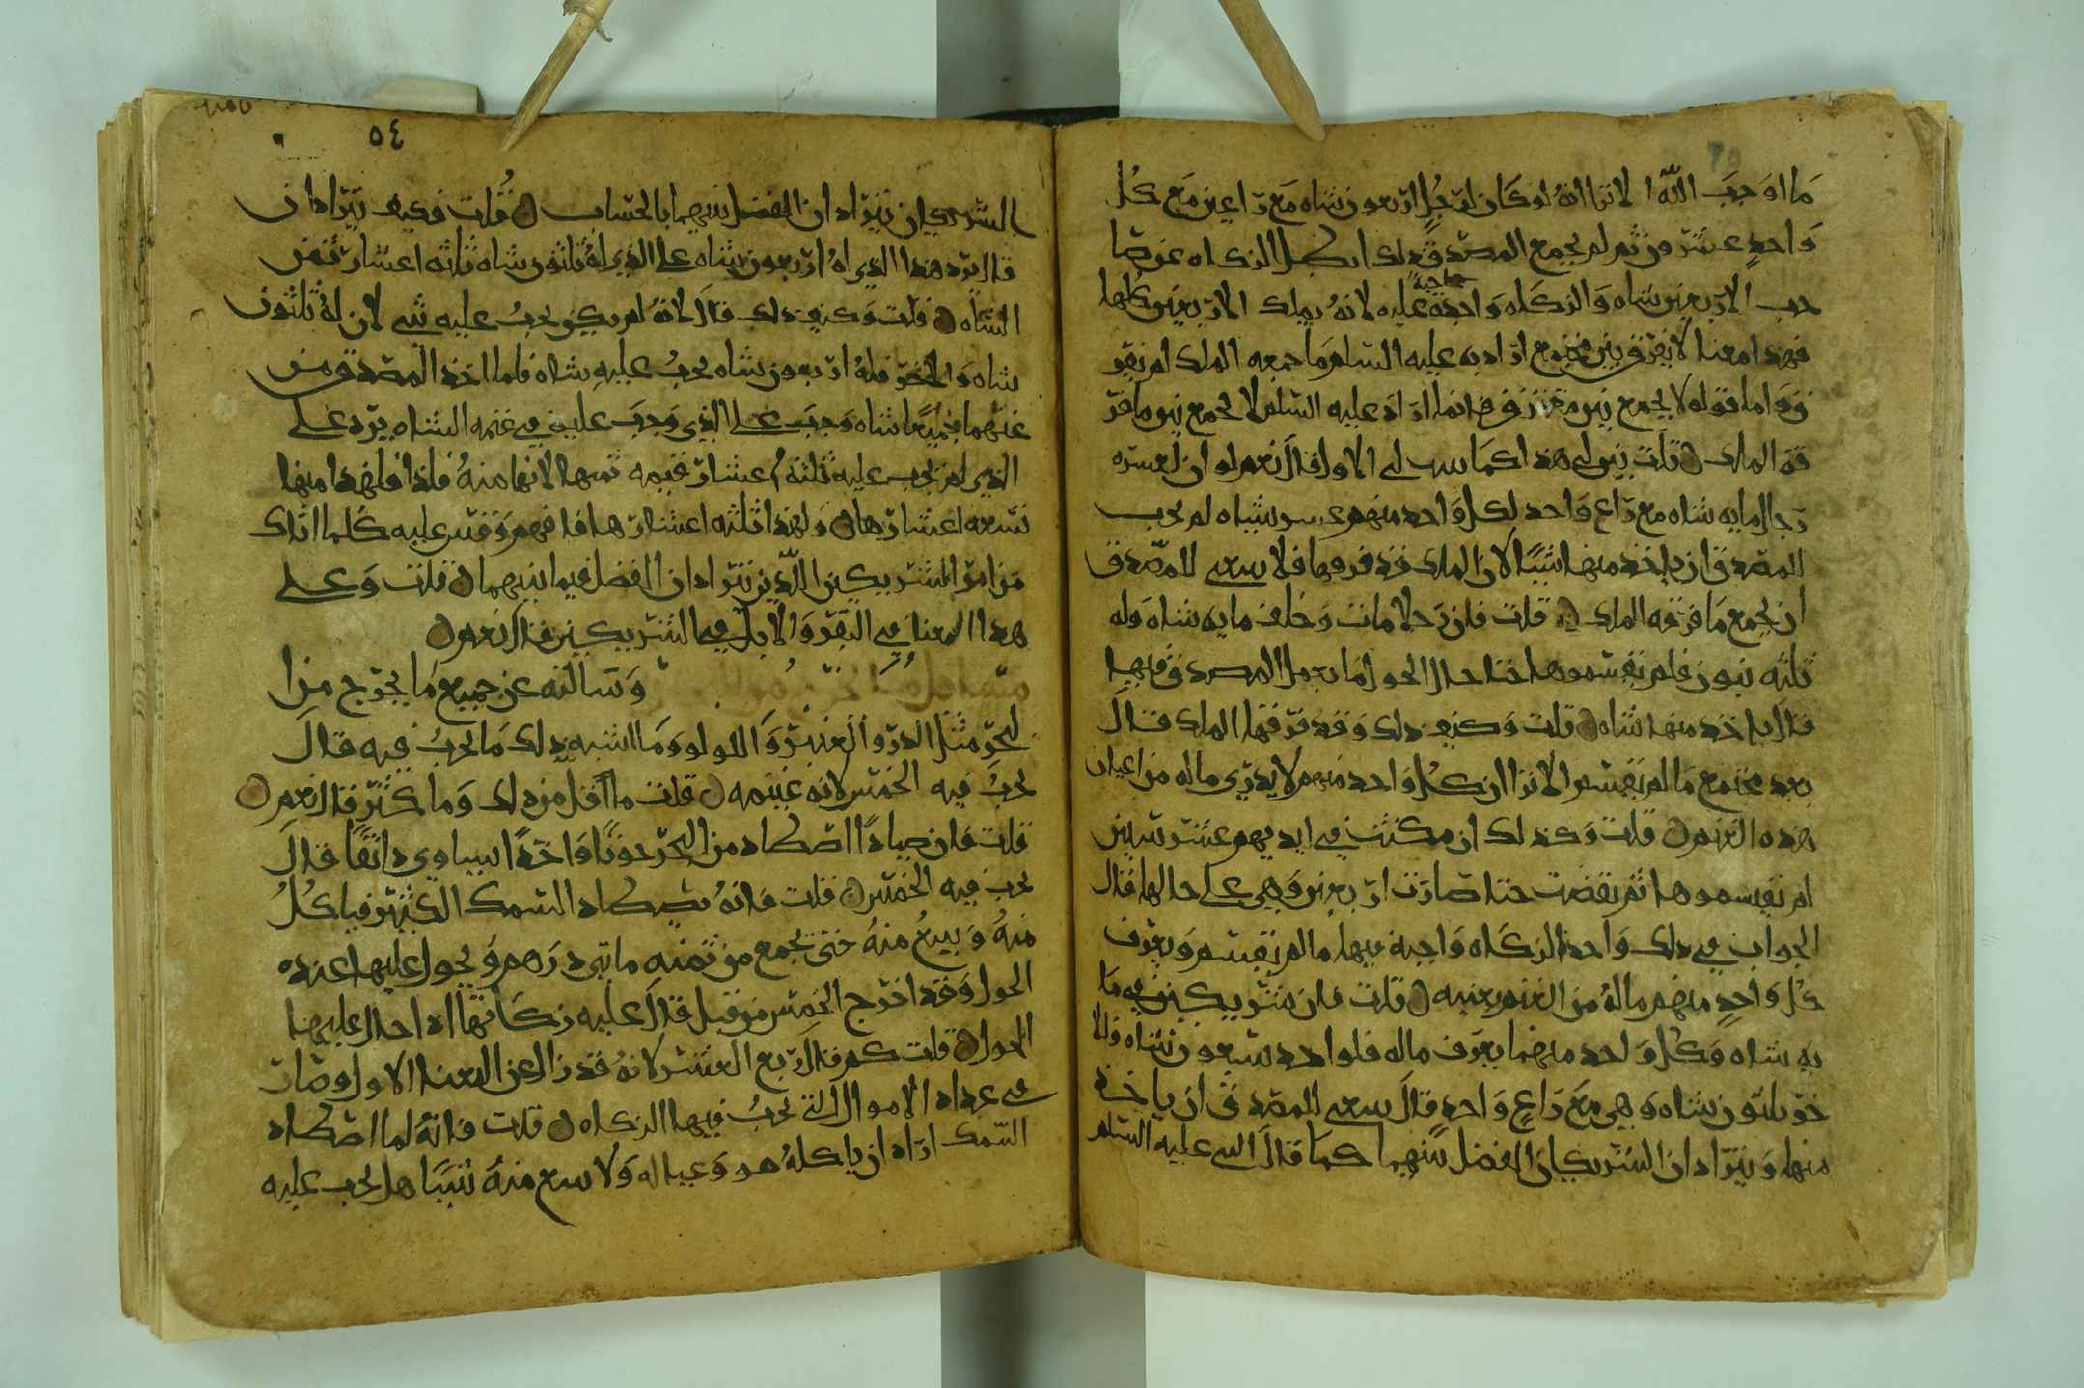 ما اوجب الله الا ترا انه لو كان لرجل اربعون شاه مع راعين مع كل
واحد عشرون ثم لم يجمع المصدق ذلك ابطل الزكاه عن صا
حب الاربعين شاه والزكاه واحده واجبة عليه لانه يملك الاربعين كلها
فهذا معنا لا يفرق بين مجتمع اراد به عليه السلم ما جمعه الملك لم يفر
ق واما قوله لا يجمع بين مفترق فانما اراد عليه السلم لا يجمع بين ما فر
قه الملك قلت بين لي هذا كما بينت لي الاول قال نعم لو ان لعشره
رجال مايه شاه مع راع واحد لكل واحد منهم عشر شياه لم يجب
للمصدق ان ياخذ منها شيا لان الملك قد فرقها فلا ينبغي للمصدق
ان يجمع ما فرقه الملك قلت فان رجلا مات وخلف مايه شاه وله
ثلثه بنون فلم يقسموها حتا حال الحول ما يعمل المصدق فيها
قال ياخذ منها شاه قلت وكيف ذلك وقد فرقها الملك قال
بعد مجتمع ما لم يقسم الا ترا ان كل واحد منهم لا يدري ماله من اعيان
هذه الغنم قلت وكذلك ان مكثت في ايديهم عشر سنين
لم يقسموها ثم نقصت حتا صارت اربعين وهي على حالها قال
الجواب في ذلك واحد الزكاه واجبة فيها ما لم يقسم ويعرف
كل واحد منهم ماله من الغنم بعينه قلت فان شريكين في ما
يه شاه وكل واحد منهما يعرف ماله فلواحد سبعون شاه وللا
خر ثلثون شاه وهي مع راع واحد قال ينبغي للمصدق ان ياخذ
منها ويتراد ان الشريكان الفضل بينهما كما قال النبي عليه السلم
٥٤
الشريكين يتراد ان الفضل بينهما بالحساب قلت فكيف يتراد ان
قال يرد هذا الذي له اربعون شاه على الذي له ثلثون شاه ثلثه اعشار ثمن
الشاه قلت وكيف ذلك قال لانه لم يكن يجب عليه شي لان له ثلثون
شاه والاخر فله اربعون شاه يجب عليه شاه فلما اخذ المصدق من
غنمهما جميعا شاه وجب على الذي وجب عليه في غنمه الشاه يرد على
الذي لم يجب عليه ثلثة اعشار قيمه ثمنها لانها منه فلذا فلهذا منها
سبعه اعشارها ولهذا ثلثه اعشارها فافهم وقس عليه كلما اتاك
من امر الشريكين اللذين يتراد ان الفضل فيما بينهما قلت وعلى
هذا المعنا في البقر والابل في الشريكين قال نعم
وسالته عن جميع ما يخرج من ا
لبحر مثل الدر والعنبر واللولو وما اشبه ذلك ما يجب فيه قال
يجب فيه الخمس لانه غنيمه قلت ما اقل من ذلك وما كثر قال نعم
قلت فان صيادا اصطاد من البحر حوتا واحدا يساوي دانقا قال
يجب فيه الخمس قلت فانه يصطاد السمك الكثير فياكل
منه ويبيع منه حتى يجمع من ثمنه مايتي درهم ويحول عليها عنده
الحول وقد اخرج الخمس من قبل قال عليه زكاتها اذا حال عليها
الحول قلت كم قال ربع العشر لانه قد زال عن المعنا الاول وصار
في عداد الاموال التي يجب فيها الزكاه قلت فانه لما اصطاد
السمك اراد ان ياكله هو وعياله ولا يبيع منه شيا هل يجب عليه